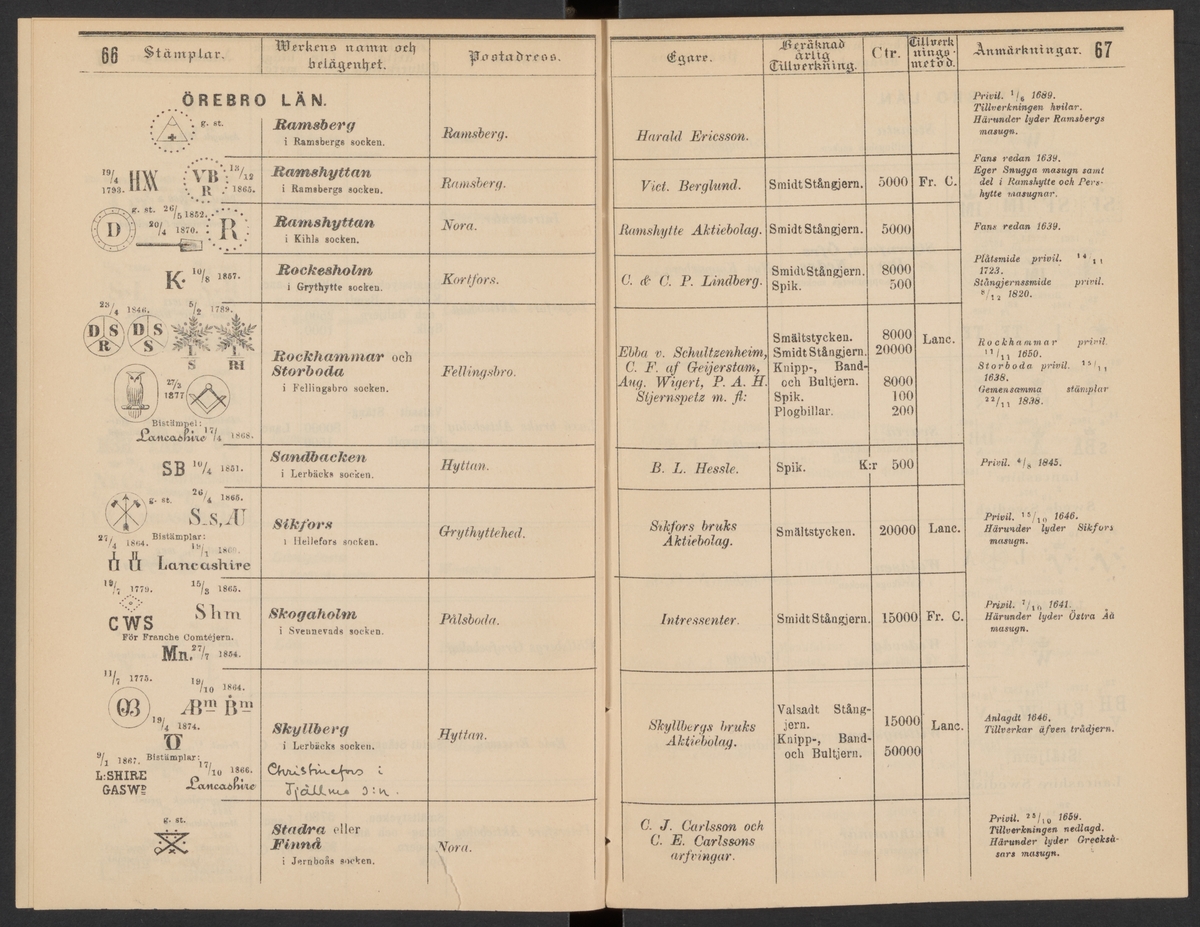 66 Stämplar. Werkens namn och belägenhet. Postadress. Egare. Beräknad årlig Tillverkning. Ctr. Tillverknings-metod. Anmärkningar. 67
ÖREBRO LÄN.
g. st.
Ramsberg
i Ramsbergs socken.
Ramsberg.
Harald Ericsson.
Privil. 1/6 1689.
Tillverkningen hvilar.
Härunder lyder Ramsbergs
masugn.
19/4 1793. HW VB R 13/12 1865.
Ramshyttan
i Ramsbergs socken.
Ramsberg.
Vict. Berglund.
Smidt Stångjern. 5000 Fr. C.
Fans redan 1639.
Eger Snugga masugn samt
del i Ramshytte och Pers-
hytte masugnar.
g. st. 26/5 1852.
D 20/4 1870. R
Ramshyttan
i Kihls socken.
Nora.
Ramshytte Aktiebolag.
Smidt Stångjern. 5000
Fans redan 1639.
K. 10/8 1857.
Rockesholm
i Grythytte socken.
Kortfors.
C. & C. P. Lindberg.
Smidt Stångjern. 8000
Spik. 500
Plåtsmide privil. 14/11
1723.
Stångjernssmide privil.
8/12 1820.
23/4 1846. 5/2 1789.
D S R D S S L S L RH
27/3 1877
Bistämpel:
Lancashire 17/4 1868.
Rockhammar och
Storboda
i Fellingsbro socken.
Fellingsbro.
Ebba v. Schultzenheim,
C. F. af Geijerstam,
Aug. Wigert, P. A. H.
Stjernspetz m. fl:
Smältstycken. 8000 Lanc.
Smidt Stångjern. 20000
Knipp-, Band-
och Bultjern. 8000
Spik. 100
Plogbillar. 200
Rockhammar privil.
11/11 1650.
Storboda privil. 15/11
1638.
Gemensamma stämplar
22/11 1838.
SB 10/4 1851.
Sandbacken
i Lerbäcks socken.
Hyttan.
B. L. Hessle.
Spik. K:r 500
Privil. 4/8 1845.
g. st. 26/4 1865.
S.s, ÆU
27/4 1864. Bistämplar:
Lancashire
Sikfors
i Hellefors socken.
Grythyttehed.
Sikfors bruks
Aktiebolag.
Smältstycken. 20000 Lanc.
Privil. 15/10 1646.
Härunder lyder Sikfors
masugn.
19/7 1779. 15/3 1865.
CWS Shm
För Franche Comtéjern.
Mn. 27/7 1854.
Skogaholm
i Svennevads socken.
Pålsboda.
Intressenter.
Smidt Stångjern. 15000 Fr. C.
Privil. 7/10 1641.
Härunder lyder Östra Åå
masugn.
11/7 1775. 19/10 1864.
ÆBm Bm
19/4 1874.
9/1 1867. Bistämplar: 17/10 1866.
L:SHIRE
GASWD Lancashire
Skyllberg
i Lerbäcks socken.
Christinefors i
Tjällmo s:n.
Hyttan.
Skyllbergs bruks
Aktiebolag.
Valsadt Stång-
jern. 15000 Lanc.
Knipp-, Band-
och Bultjern. 50000
Anlagdt 1646.
Tillverkar äfven trådjern.
g. st.
Stadra eller
Finnå
i Jernboås socken.
Nora.
C. J. Carlsson och
C. E. Carlssons
arfvingar.
Privil. 25/10 1659.
Tillverkningen nedlagd.
Härunder lyder Greckså-
sars masugn.